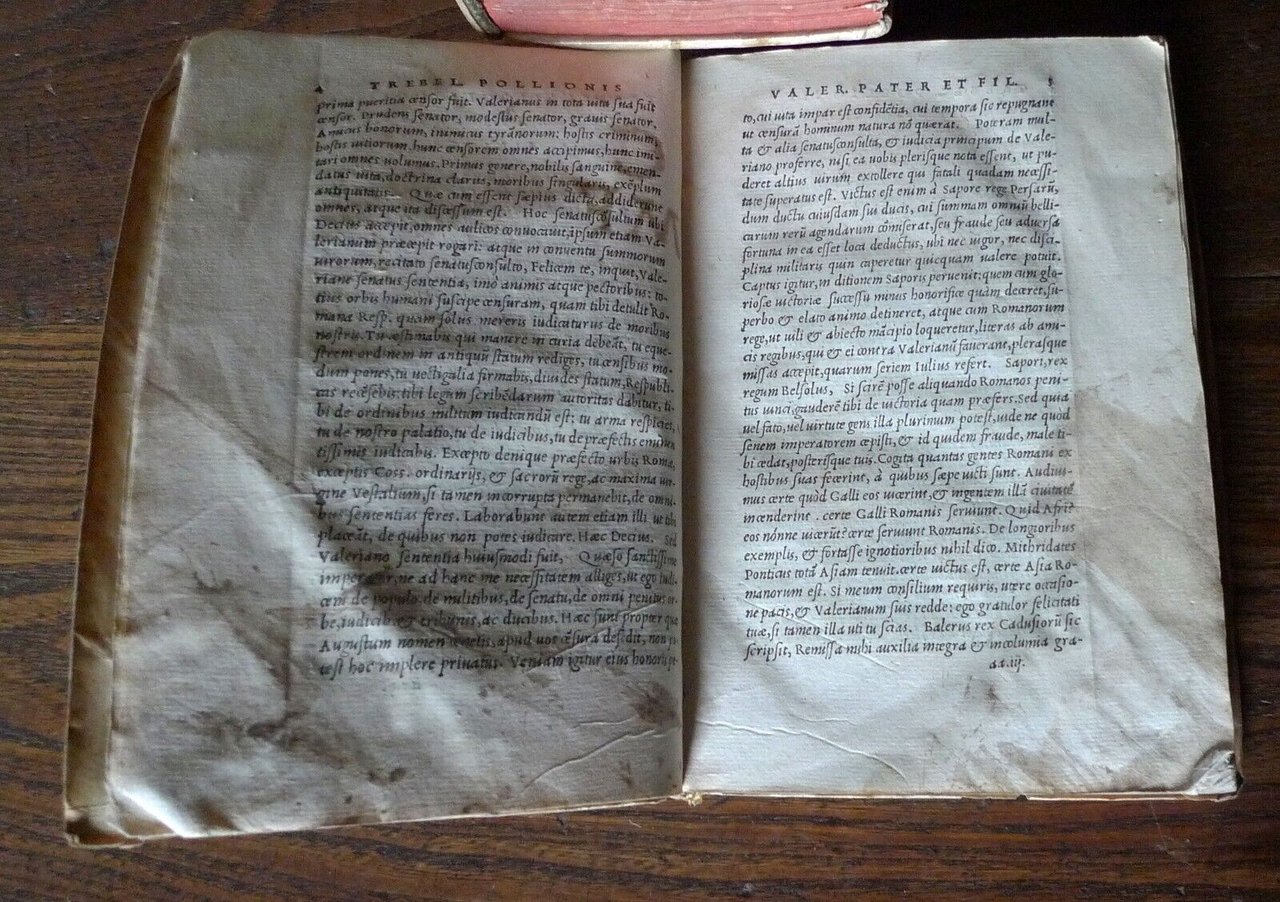 4 TREBEL. POLLIONIS
prima pueritia censor fuit. Valerianus in tota uita sua fuit
censor. Prudens senator, modestus senator, grauis senator.
Amicus bonorum, inimicus tyrãnorum: hostis criminum,
hostis uitiorum. hunc censorem omnes accipimus, hunc imi-
tari omnes uolumus. Primus genere, nobilis sanguine, emen-
datus uita, doctrina clarus, moribus singularis, exẽplum
antiquitatis. Quæ cum essent sæpius dicta, addiderunt
omnes, atque ita discessum est. Hoc senatuscõsultum ubi
Decius accepit, omnes aulicos conuocauit, ipsum etiam Va-
lerianum præcepit rogari: atque in conuentu summorum
uirorum, recitato senatusconsulto, Felicem te, inquit, Vale-
riane senatus sententia, imò animis atque pectoribus: to-
tius orbis humani suscipe censuram, quam tibi detulit Ro-
mana Resp. quam solus mereris iudicaturus de moribus
nostris. Tu æstimabis qui manere in curia debeãt, tu eque-
strem ordinem in antiquũ statum rediges, tu censibus mo-
dum pones, tu uectigalia firmabis, diuides statum, Respubli-
cas recẽsebis: tibi legum scribẽdarum autoritas dabitur, ti-
bi de ordinibus militum iudicandũ est: tu arma respicies,
tu de nostro palatio, tu de iudicibus, tu de præfectis eminen-
tissimis iudicabis. Excepto denique præfecto urbis Romæ,
exceptis Coss. ordinarijs, & sacrorũ rege, ac maxima uir-
gine Vestalium, si tamen incorrupta permanebit, de omni-
bus sententias feres. Laborabunt autem etiam illi ut tibi
placeãt, de quibus non potes iudicare. Hæc Decius. Sed
Valeriano sententia huiusmodi fuit, Quæso sanctissime
imperator, ne ad hanc me necessitatem alliges, ut ego iudi-
cem de populo, de militibus, de senatu, de omni penitus or-
be, iudicib. & tribunis, ac ducibus. Hæc sunt propter quæ
Augustum nomen tenetis, apud uos cẽsura desedit, non po-
test hoc implere priuatus. Veniam igitur eius honoris pe-
VALER. PATER ET FIL. 5
to, cui uita impar est confidẽtia, cui tempora sic repugnant
ut censurã hominum natura nõ quærat. Poteram mul-
ta & alia senatusconsulta, & iudicia principum de Vale-
riano proferre, nisi ea uobis plerisque nota essent, ut pu-
deret altius uirum extollere qui fatali quadam necessi-
tate superatus est. Victus est enim à Sapore rege Persarũ,
dum ductu cuiusdam sui ducis, cui summam omniũ belli-
carum rerũ agendarum cõmiserat, seu fraude seu aduersa
fortuna in ea esset loca deductus, ubi nec uigor, nec disci-
plina militaris quin caperetur quicquam ualere potuit.
Captus igitur, in ditionem Saporis peruenit: quem cum glo-
riosæ uictoriæ successu minus honorifice quàm deceret, su-
perbo & elato animo detineret, atque cum Romanorum
rege, ut uili & abiecto mãcipio loqueretur, literas ab ami-
cis regibus, qui & ei contra Valerianũ fauerant, plerasque
missas accepit, quarum seriem Iulius refert. Sapori, rex
regum Belsolus, Si scirẽ posse aliquando Romanos peni-
tus uinci, gauderẽ tibi de uictoria quam præfers. Sed quia
uel fato, uel uirtute gens illa plurimum potest, uide ne quod
senem imperatorem cæpisti, & id quidem fraude, male ti-
bi cedat, posterisque tuis. Cogita quantas gentes Romani ex
hostibus suas fecerint, à quibus sæpe uicti sunt. Audiui-
mus certe quòd Galli eos uicerint, & ingentem illã ciuitatẽ
incenderint. certe Galli Romanis seruiunt. Quid Afri?
eos nõnne uicerũt? certe seruiunt Romanis. De longioribus
exemplis, & fortasse ignotioribus nihil dico. Mithridates
Ponticus totã Asiam tenuit. certe uictus est, certe Asia Ro-
manorum est. Si meum consilium requiris, utere occasio-
ne pacis, & Valerianum suis redde: ego gratulor felicitati
tuæ, si tamen illa uti tu scias. Balerus rex Cadusiorũ sic
scripsit, Remissa mihi auxilia integra & incolumia gra-
aa iij.